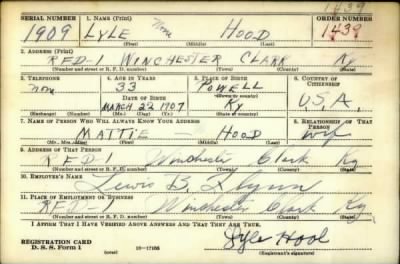 1439
SERIAL NUMBER 1. NAME (Print) ORDER NUMBER
1909 LYLE None HOOD 1439
(First) (Middle) (Last)
2. ADDRESS (Print)
RFD-1 WINCHESTER CLARK Ky
(Number and street or R. F. D. number) (Town) (County) (State)
3. TELEPHONE 4. AGE IN YEARS 5. PLACE OF BIRTH 6. COUNTRY OF CITIZENSHIP
None 33 POWELL U.S.A.
DATE OF BIRTH (Town or county)
MARCH 22 1907 Ky
(Exchange) (No.) (Mo.) (Day) (Yr.) (State or country)
7. NAME OF PERSON WHO WILL ALWAYS KNOW YOUR ADDRESS 8. RELATIONSHIP OF THAT PERSON
MATTIE HOOD Wife
(Mr., Mrs., Miss) (First) (Middle) (Last)
9. ADDRESS OF THAT PERSON
RFD-1 Winchester Clark Ky
(Number and street or R. F. D. number) (Town) (County) (State)
10. EMPLOYER'S NAME
Lewis B. Flynn
11. PLACE OF EMPLOYMENT OR BUSINESS
RFD-1 Winchester Clark Ky
(Number and street or R. F. D. number) (Town) (County) (State)
I AFFIRM THAT I HAVE VERIFIED ABOVE ANSWERS AND THAT THEY ARE TRUE.
REGISTRATION CARD
D. S. S. Form 1 16—17105 Lyle Hood
(Registrant's signature)